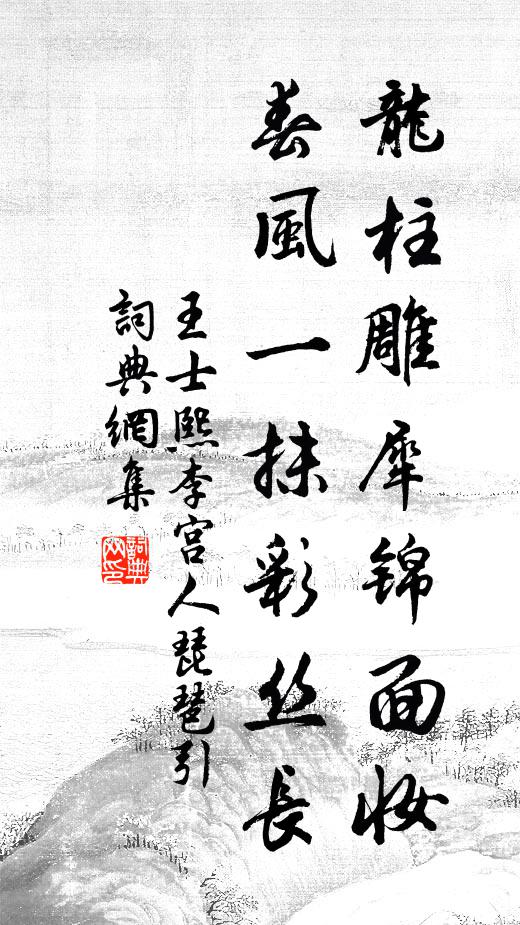 龍柱雕犀錦面妝
春風一抹彩丝長
王士熙·李宫人琵琶引
詞典網集
詞典网印